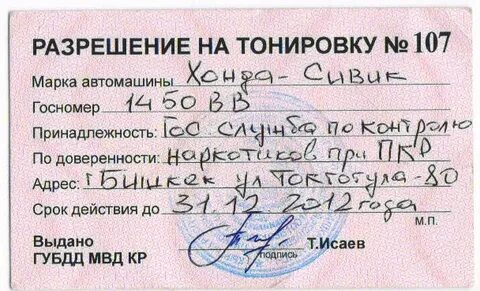 РАЗРЕШЕНИЕ НА ТОНИРОВКУ № 107
Марка автомашины Хонда - Сивик
Госномер 1450 ВВ
Принадлежность: Гос служба по контролю
По доверенности: наркотиков при ПКР
Адрес: г Бишкек ул Токтогула - 80
Срок действия до 31.12 2012 года
М.П.
Выдано Т.Исаев
ГУБДД МВД КР подпись